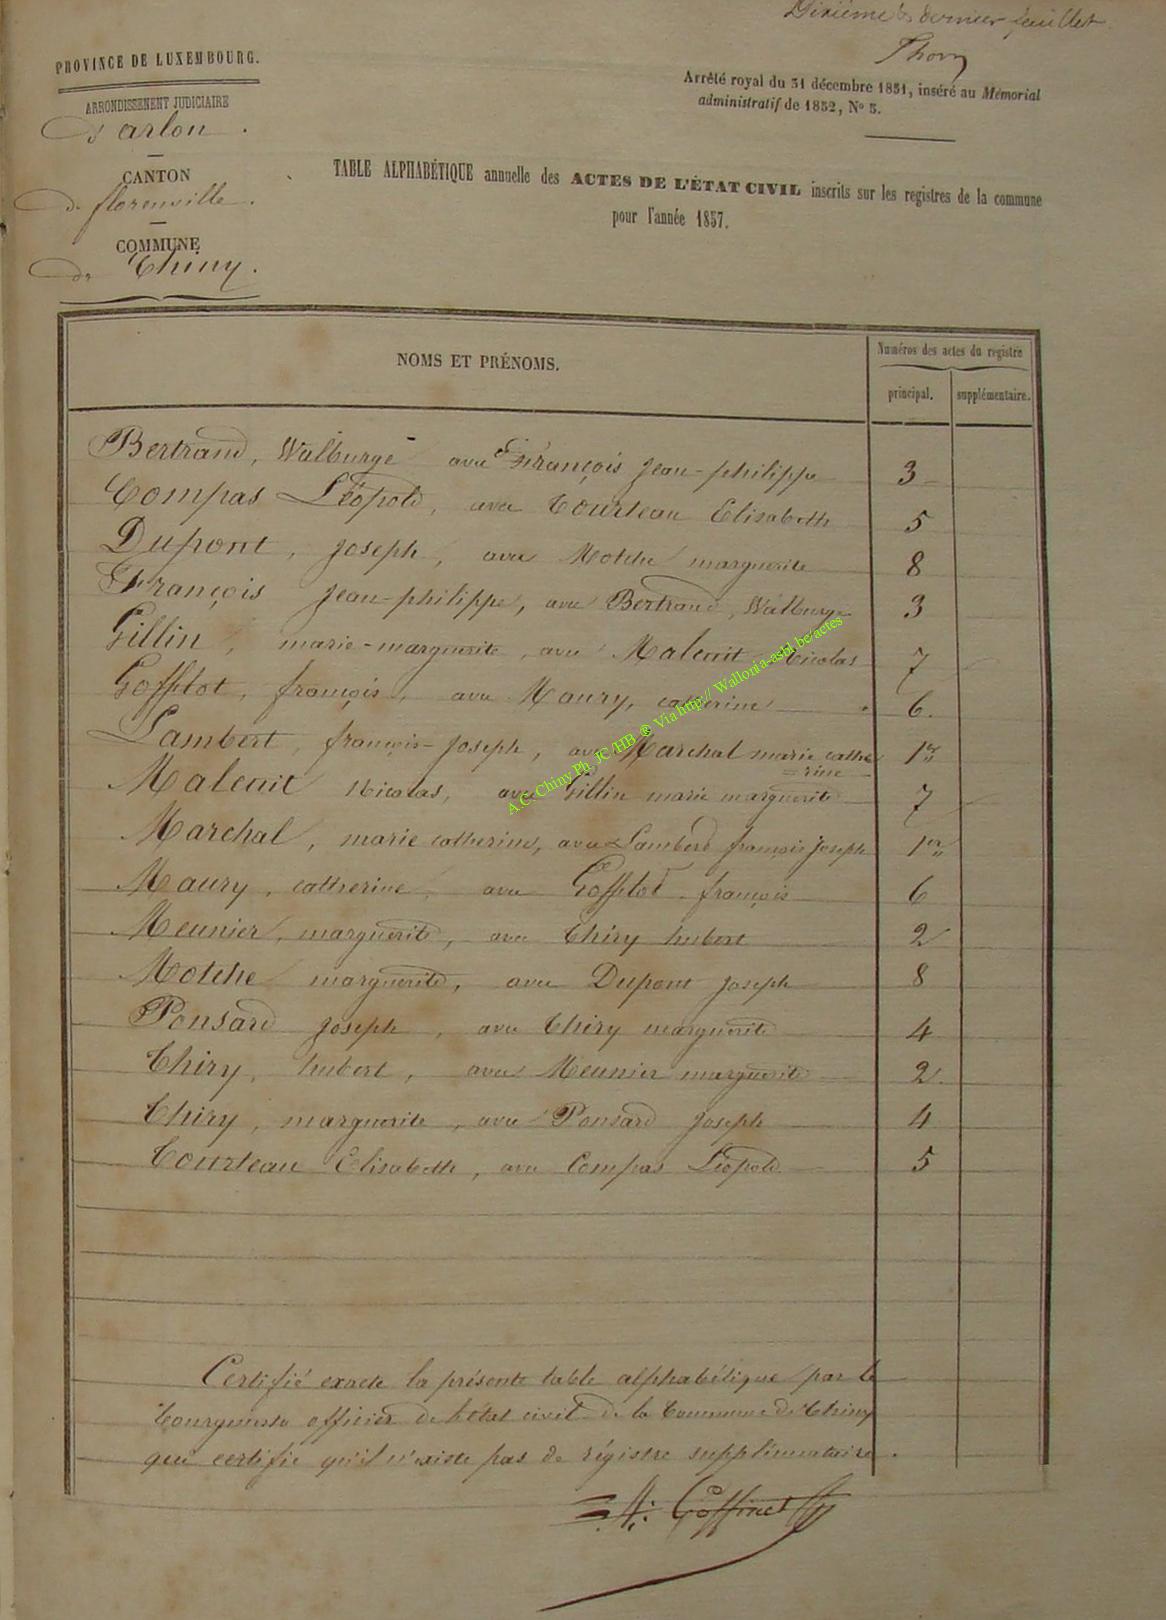 Dixième & dernier feuillet
Thorn
PROVINCE DE LUXEMBOURG.
ARRONDISSEMENT JUDICIAIRE
d'arlon.
CANTON
de florenville.
COMMUNE
de Chiny.
Arrêté royal du 31 décembre 1851, inséré au Mémorial
administratif de 1852, N° 5.
TABLE ALPHABÉTIQUE annuelle des ACTES DE L'ÉTAT CIVIL inscrits sur les registres de la commune
pour l'année 1857.
NOMS ET PRÉNOMS.
Numéros des actes du registre
principal. supplémentaire.
Bertrand, Walburge avec François Jean-philippe 3
Compas Léopold, avec Tourteau Elisabeth 5
Dupont, joseph, avec Motche marguerite 8
François Jean-philippe, avec Bertrand, Walburge 3
Gillin, marie-marguerite avec Malcuit Nicolas 7
Gofflot, françois, avec Maury, catherine 6.
Lambert, françois-Joseph, avec Marchal marie cathe 1er
=rine
Malcuit Nicolas, avec Gillin marie marguerite 7
Marchal, marie catherine, avec Lambert françois joseph 1er
Maury, catherine, avec Gofflot françois 6
Meunier, marguerite, avec Thiry hubert 2
Motche marguerite, avec Dupont joseph 8
Ponsard joseph, avec Thiry marguerite 4
Thiry, hubert, avec Meunier marguerite 2
Thiry, marguerite, avec Ponsard joseph 4
Tourteau Elisabeth, avec Compas Léopold 5
Certifié exacte la présente table alphabétique par le
bourgmestre officier de l'état civil de la Commune de Chiny
qui certifie qu'il n'existe pas de régistre supplémentaire.
Goffinet
A.C. Chiny Ph. JC/HB ® Via http:// Wallonia-asbl.be/actes